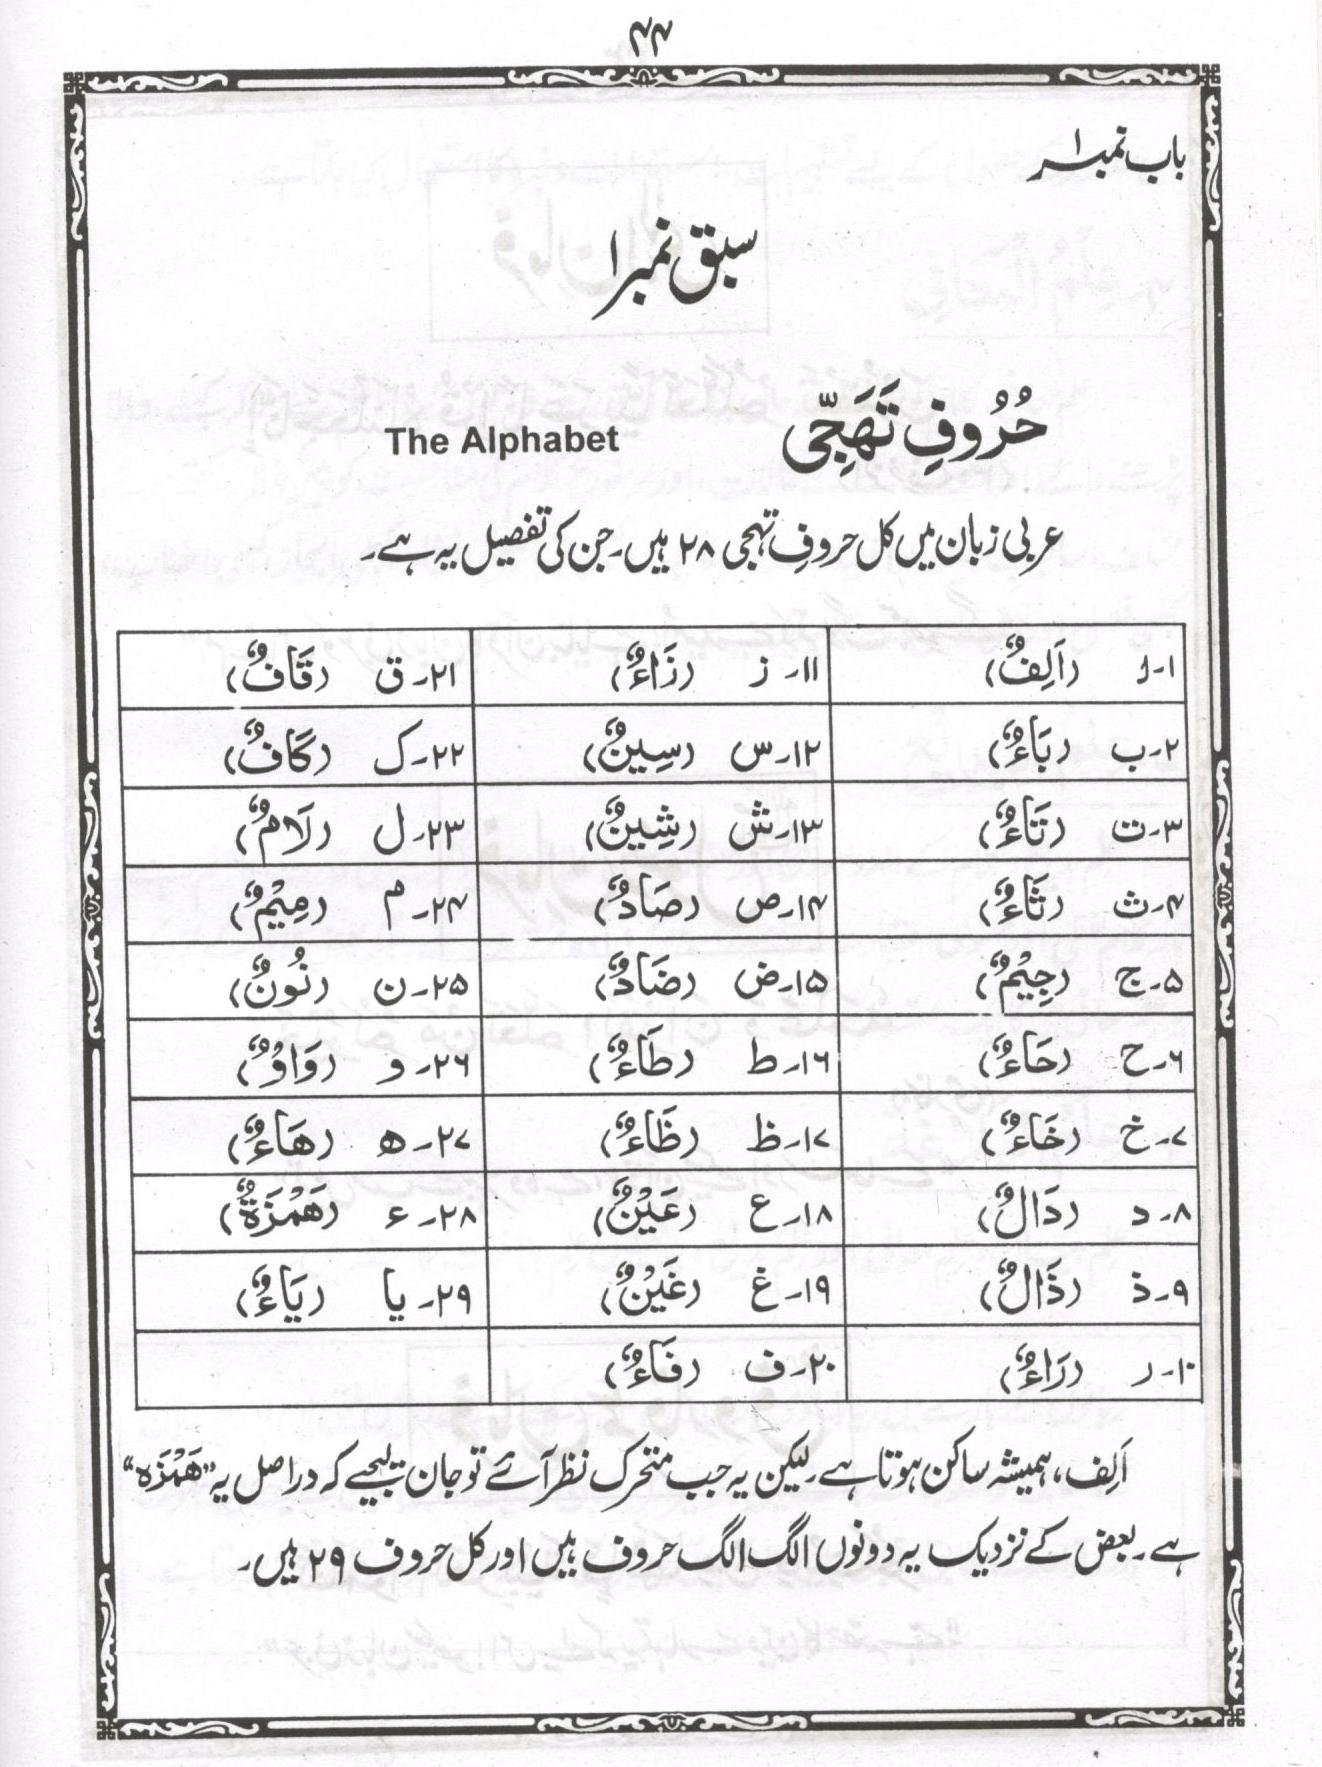 ۴۴
باب نمبر ۱
سبق نمبر ۱
حُرُوفِ تَهَجِّی The Alphabet
عربی زبان میں کل حروفِ تہجی ۲۸ ہیں۔ جن کی تفصیل یہ ہے۔
۱۔ ا (اَلِفٌ) ۱۱۔ ز (زَاءٌ) ۲۱۔ ق (قَافٌ)
۲۔ ب (بَاءٌ) ۱۲۔ س (سِينٌ) ۲۲۔ ک (كَافٌ)
۳۔ ت (تَاءٌ) ۱۳۔ ش (شِينٌ) ۲۳۔ ل (لَامٌ)
۴۔ ث (ثَاءٌ) ۱۴۔ ص (صَادٌ) ۲۴۔ م (مِيْمٌ)
۵۔ ج (جِيْمٌ) ۱۵۔ ض (ضَادٌ) ۲۵۔ ن (نُونٌ)
۶۔ ح (حَاءٌ) ۱۶۔ ط (طَاءٌ) ۲۶۔ و (وَاوٌ)
۷۔ خ (خَاءٌ) ۱۷۔ ظ (ظَاءٌ) ۲۷۔ ه (هَاءٌ)
۸۔ د (دَالٌ) ۱۸۔ ع (عَيْنٌ) ۲۸۔ ء (هَمْزَةٌ)
۹۔ ذ (ذَالٌ) ۱۹۔ غ (غَيْنٌ) ۲۹۔ یا (يَاءٌ)
۱۰۔ ر (رَاءٌ) ۲۰۔ ف (فَاءٌ)
اَلِف، ہمیشہ ساکن ہوتا ہے۔ لیکن یہ جب متحرک نظر آئے تو جان لیجیے کہ دراصل یہ “هَمْزَہ”
ہے۔ بعض کے نزدیک یہ دونوں الگ الگ حروف ہیں اور کل حروف ۲۹ ہیں۔